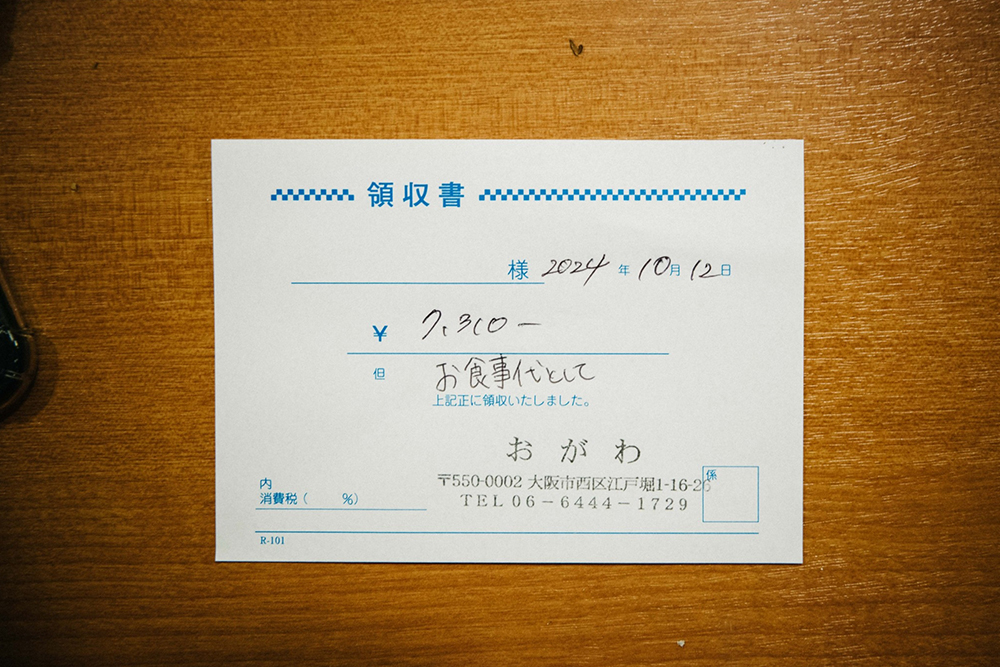 領収書
様 2024年10月12日
¥ 7,310-
但 お食事代として
上記正に領収いたしました。
おがわ
〒550-0002 大阪市西区江戸堀1-16-26
TEL 06-6444-1729
係
内
消費税( %)
R-101